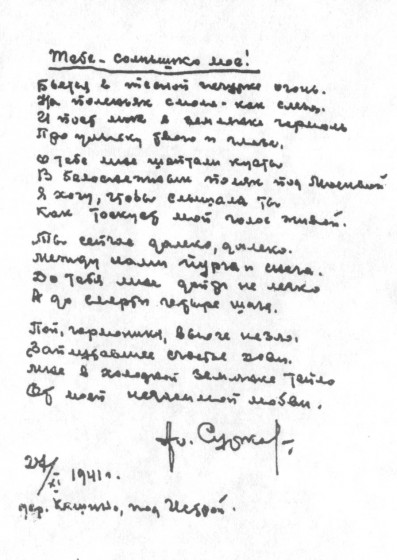 Тебе - солнышко мое!
Бьется в тесной печурке огонь.
На поленьях смола - как слеза.
И поет мне в землянке гармонь
Про улыбку твою и глаза.
О тебе мне шептали кусты
В белоснежных полях под Москвой
Я хочу, чтобы слышала ты
Как тоскует мой голос живой.
Ты сейчас далеко, далеко.
Между нами пурга и снега.
До тебя мне дойти не легко
А до смерти четыре шага.
Пой, гармоника, вьюге назло.
Заплутавшее счастье зови.
Мне в холодной землянке тепло
От моей негасимой любви.
Ал. Сурков.
27/XI 1941 г.
дер. Кашино, под Истрой.